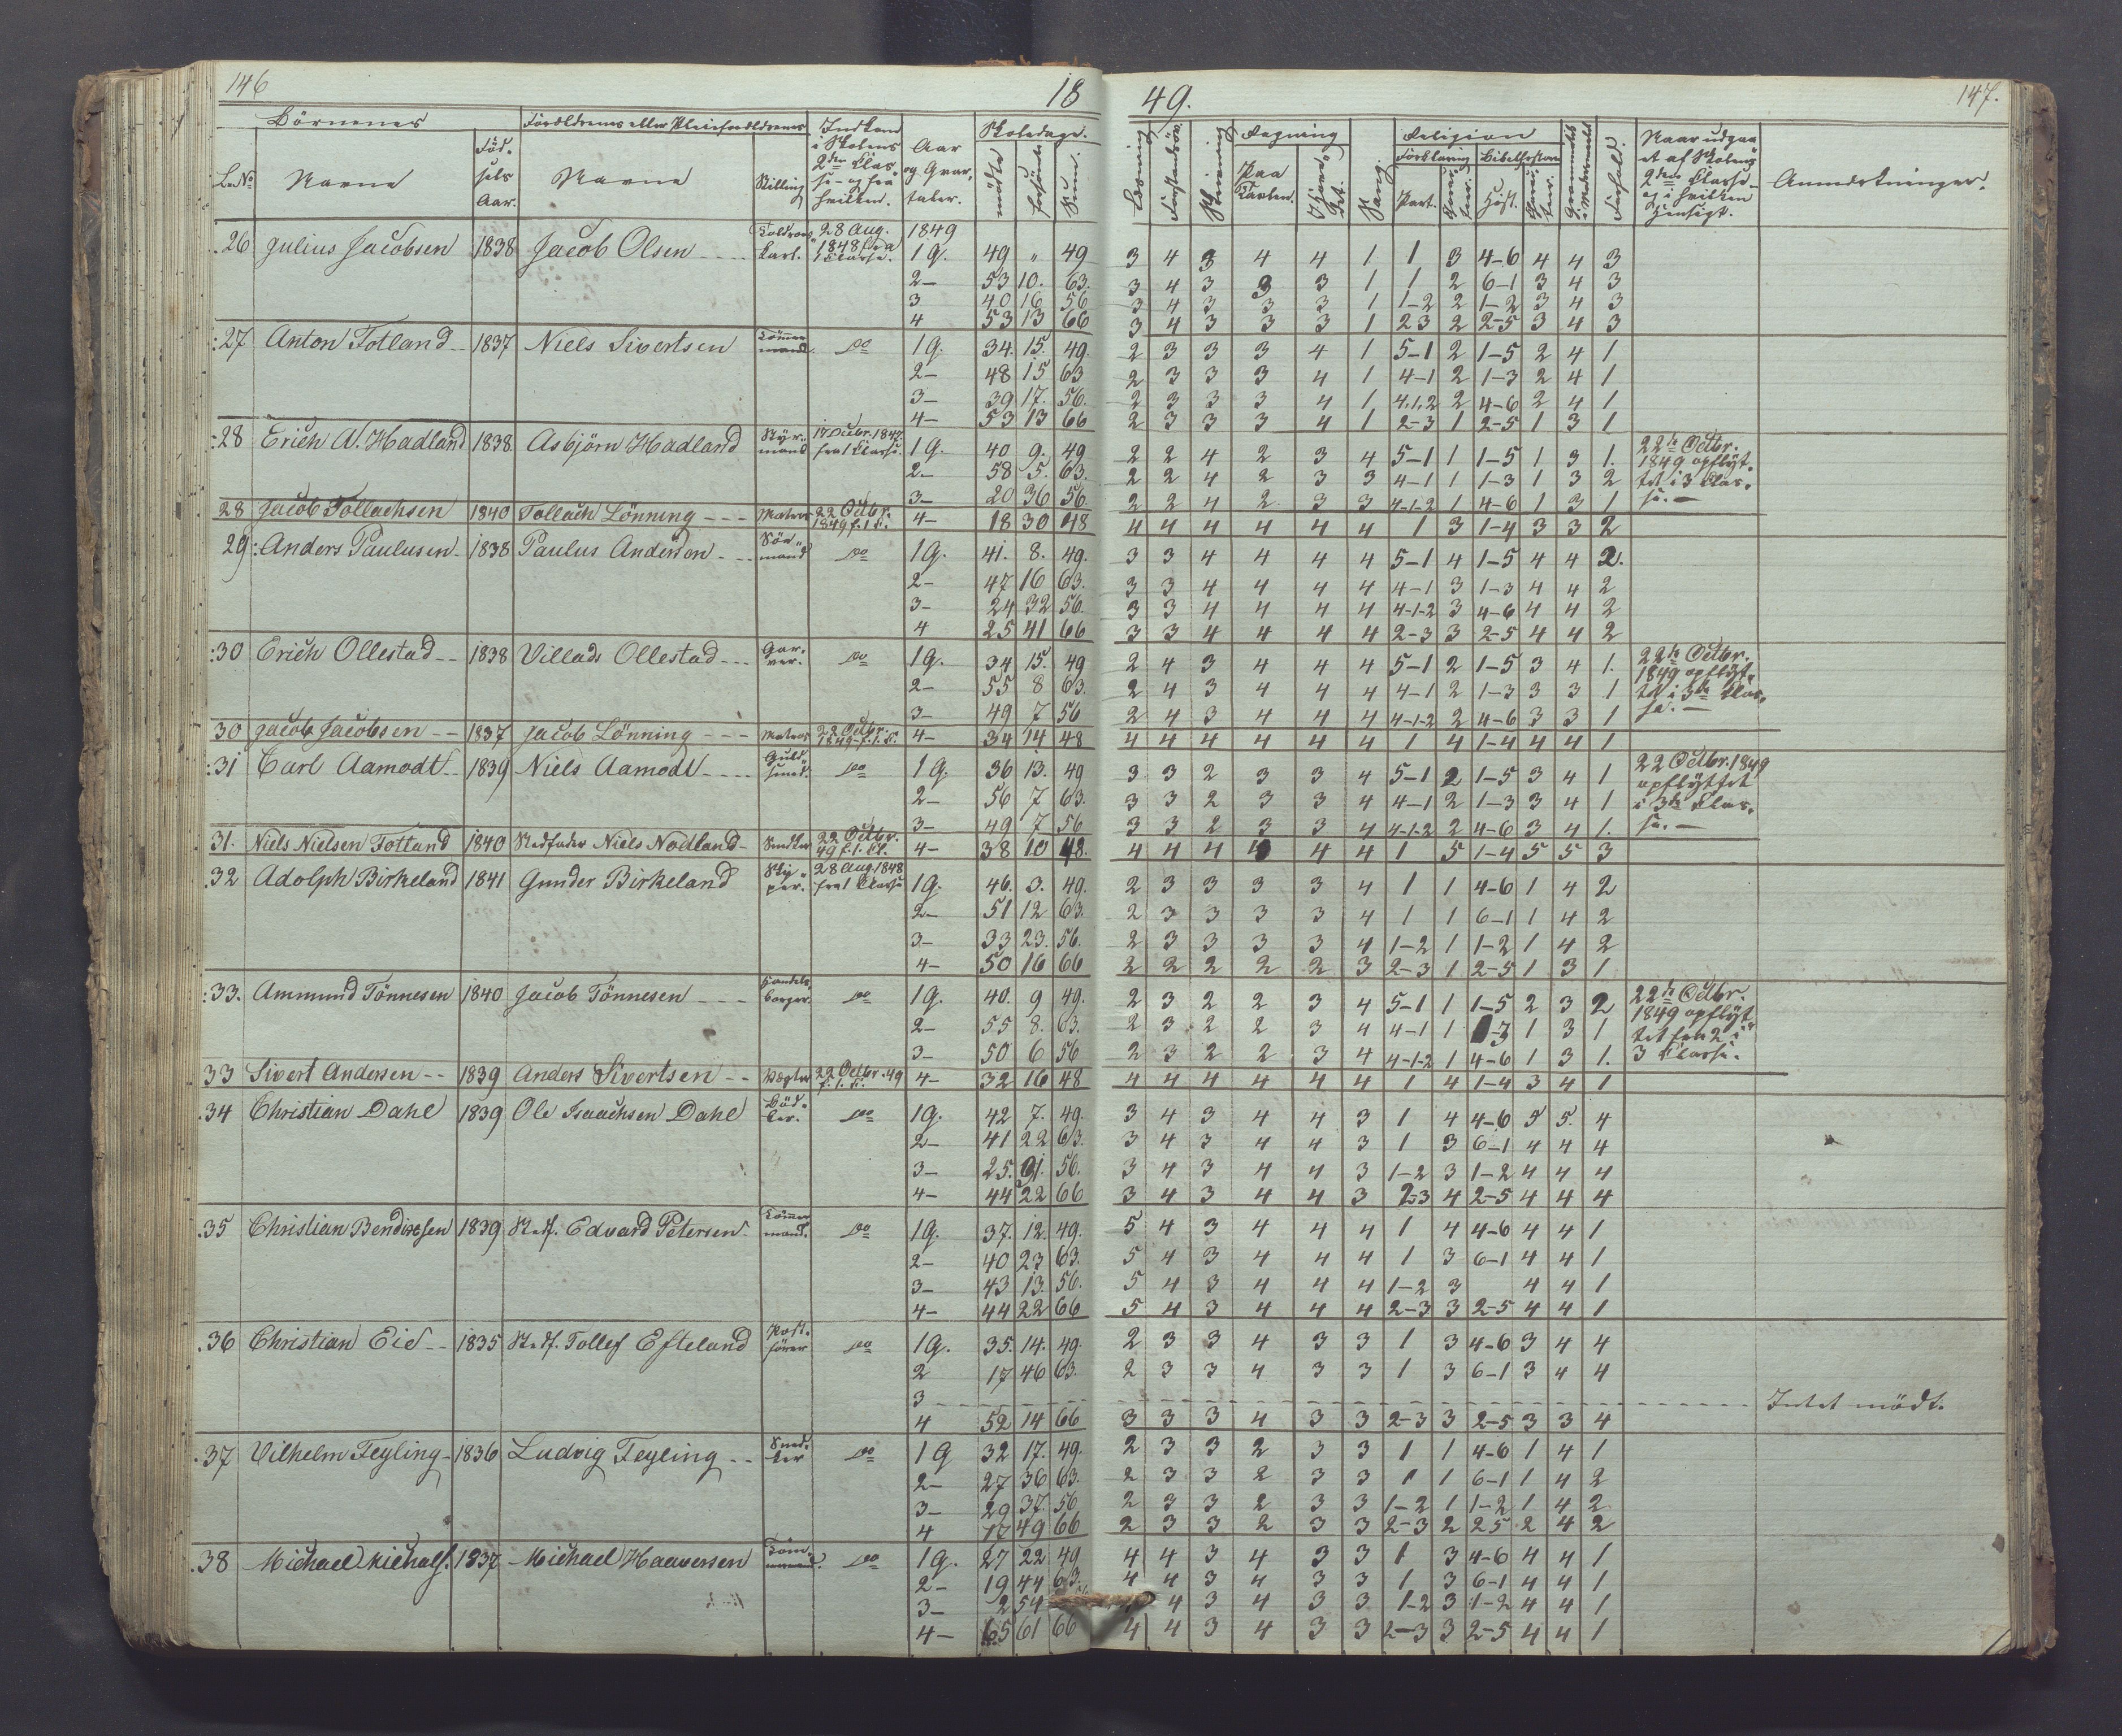 146
18
49.
147.
Börnenes
Forældrenes eller Pleieforældrenes
Indkom i Skolens 2den Classe og fra hvilken.
Aar og Qvartaler.
Skoledage.
Læsning
Skrivning
Regning
Sang
Religion
Naar udgaaet af Skolens 2den Classe og i hvilken Hensigt.
Anmærkninger.
L. No
Navne
Födsels Aar.
Navne
Stilling
mödte
forsömte
Sum.
Paa Tavlen.
Hoved Rt.
Forklaring
Bibelhistorie
Part.
Hist.
26 Julius Jacobsen 1838 Jacob Olsen 28 Aug. 1848 fra 1 Classe. 1849
1 Q. 49 " 49 3 4 3 4 4 1 1 3 4-6 4 4 3
2- 53 10. 63. 3 4 3 3 3 1 1 2 6-1 3 4 3
3 40 16 56 3 4 3 3 3 1 1-2 2 1-2 3 4 3
4 53 13 66 3 4 3 3 3 1 23 2 2-5 3 4 3
27 Anton Totland 1837 Niels Sivertsen Tömmermand do 1 Q. 34. 15. 49. 2 3 3 3 4 1 5-1 2 1-5 2 4 1
2- 48 15 63 2 3 3 3 4 1 4-1 2 1-3 2 4 1
3- 39 17. 56. 2 3 3 3 4 1 4.1.2 2 4-6 2 4 1
4- 53 13 66 2 3 3 3 4 1 2-3 1 2-5 1 3 1
28 Erich A. Hadland 1838. Asbjörn Hadland Styrmand 17 Octbr. 1847. fra 1 Classe. 1 Q. 40 9. 49 2 2 4 2 3 4 5-1 1 1-5 1 3 1. 22de Octbr. 1849 opflyttet i 3 Classe.
2- 58 5. 63. 2 2 4 2 3 3 4-1 1 1-3 1 3 2
3- 20 36 56 2 2 4 2 3 3 4-1-2 1 4-6 1 3 1
28 Jacob Tollachsen 1840 Tollach Lönning Matros 22 Octbr. 1849 f. 1. Cl. 4- 18 30 48 4 4 4 4 4 4 1 3 1-4 3 3 2
29 Anders Paulusen 1838 Paulus Anderson Sömand do 1 Q. 41. 8. 49. 3 3 4 4 4 4 5-1 4 1-5 4 4 2.
2- 47 16 63. 3 3 4 4 4 4 4-1 3 1-3 4 4 2
3- 24 32 56 3 3 4 4 4 4 4-1-2 3 4-6 4 4 2
4 25 41 66 3 3 4 4 4 4 2-3 3 2-5 4 4 2
30 Erich Ollestad 1838 Villads Ollestad Garver. do 1 Q. 34 15. 49 2 4 3 4 4 4 5-1 2 1-5 3 4 1. 22de Octbr. 1849 opflyttet i 3de Classe.
2- 55 8 63. 2 4 3 4 4 4 4-1 2 1-3 3 3 1
3- 49 7 56 2 4 3 4 4 4 4-1-2 2 4-6 3 3 1
30 Jacob Jacobsen 1837 Jacob Lönning Matros 22 Octbr. 1849 f. 1. Cl. 4- 34 14 48 4 4 4 4 4 4 1 4 1-4 4 4 1
31 Carl Aamodt 1839 Niels Aamodt Guldsmed. do 1 Q. 36 13. 49 3 3 2 3 3 4 5-1 2 1-5 3 4 1 22 Octbr. 1849 opflyttet i 3de Classe.
2- 56 7 63. 3 3 2 3 3 4 4-1 2 1-3 3 4 1
3- 49 7 56 3 3 2 3 3 4 4-1-2 2 4-6 3 4 1.
31. Niels Nielsen Totland 1840 Stedfader Niels Nodland Snedker 22 Octbr. 49 f. 1. Cl. 4- 38 10 48. 4 4 4 4 4 4 1 5 1-4 5 5 3
32 Adolph Birkeland 1841 Gunder Birkeland Skipper. 28 Aug. 1848 fra 1 Classe 1 Q. 46. 3. 49. 2 3 3 3 3 4 1 1 4-6 1 4 2
2- 51 12 63. 2 3 3 3 3 4 1 1 6-1 1 4 2
3- 33 23. 56. 2 3 3 3 3 4 1-2 1 1-2 1 4 2
4- 50 16 66 2 2 2 2 2 3 2-3 1 2-5 1 3 1
33. Ammund Tönnesen 1840 Jacob Tönnesen Handelsborger. do 1 Q. 40. 9 49. 2 3 2 2 3 4 5-1 1 1-5 2 3 2 22de Octbr. 1849 opflyttet fra 2 i 3 Classe.
2- 55 8. 63. 2 3 2 2 3 4 4-1 1 1-3 1 3 1
3- 50 6 56 2 3 2 2 3 4 4-1-2 1 4-6 1 3 1.
33 Sivert Andersen 1839 Anders Sivertsen 22 Octbr. 49 f. 1. Cl. 4- 32 16 48 4 4 4 4 4 4 1 4 1-4 3 4 1
34 Christian Dahl 1839 Ole Isaachsen Dahl Bödker. do 1 Q. 42 7. 49. 3 4 3 4 4 3 1 4 4-6 5 5. 4
2- 41 22 63. 3 4 3 4 4 3 1 3 6-1 4 4 4
3- 25. 31. 56. 3 4 3 4 4 3 1-2 3 1-2 4 4 4
4- 44 22 66 3 4 3 4 4 3 2-3 4 2-5 4 4 4
35 Christian Bendixsen 1839 Stdf. Edvard Petersen Tömmermand. do 1 Q. 37. 12. 49. 5 4 3 4 4 4 1 4 4-6 4 4 1
2- 40 23 63. 5 4 3 4 4 4 1 3 6-1 4 4 1
3- 43 13. 56. 5 4 3 4 4 4 1-2 3 4 4 1
4- 44 22 66 5 4 3 4 4 4 2-3 3 2-5 4 4 1
36 Christian Eie 1835 Stdf. Tollef Efteland Postförer do 1 Q. 35. 14. 49. 2 3 3 4 3 3 1 3 4-6 3 4 4
2 17 46 63. 2 3 3 4 3 3 1 3 6-1 3 4 4
3 Intet mödt.
4 52 14 66 3 3 3 4 3 3 2-3 3 2-5 3 3 4
37 Vilhelm Feyling 1836 Ludvig Feyling Snedker do 1 Q 32 17. 49. 2 3 3 2 3 3 1 1 4-6 1 4 1
2- 27 36 63. 2 3 3 2 3 3 1 1 6-1 1 4 2
3- 29 37. 56 2 3 3 2 3 3 1-2 1 1-2 1 4 2
4 17 49 66 2 3 3 2 3 3 2-3 2 25 2 4 2
38 Michael Michals. 1837 Michael Haaversen do 1 Q. 27 22 49 4 4 3 4 3 3 1 3 4-6 4 4 1
2- 19 44 63. 4 4 3 4 3 3 1 3 6-1 4 4 1
3- 2 54 4 3 4 3 3 1-2 3 1-2 4 4 1
4- 5 61 66 4 4 3 4 3 3 2-3 3 2-5 4 4 1